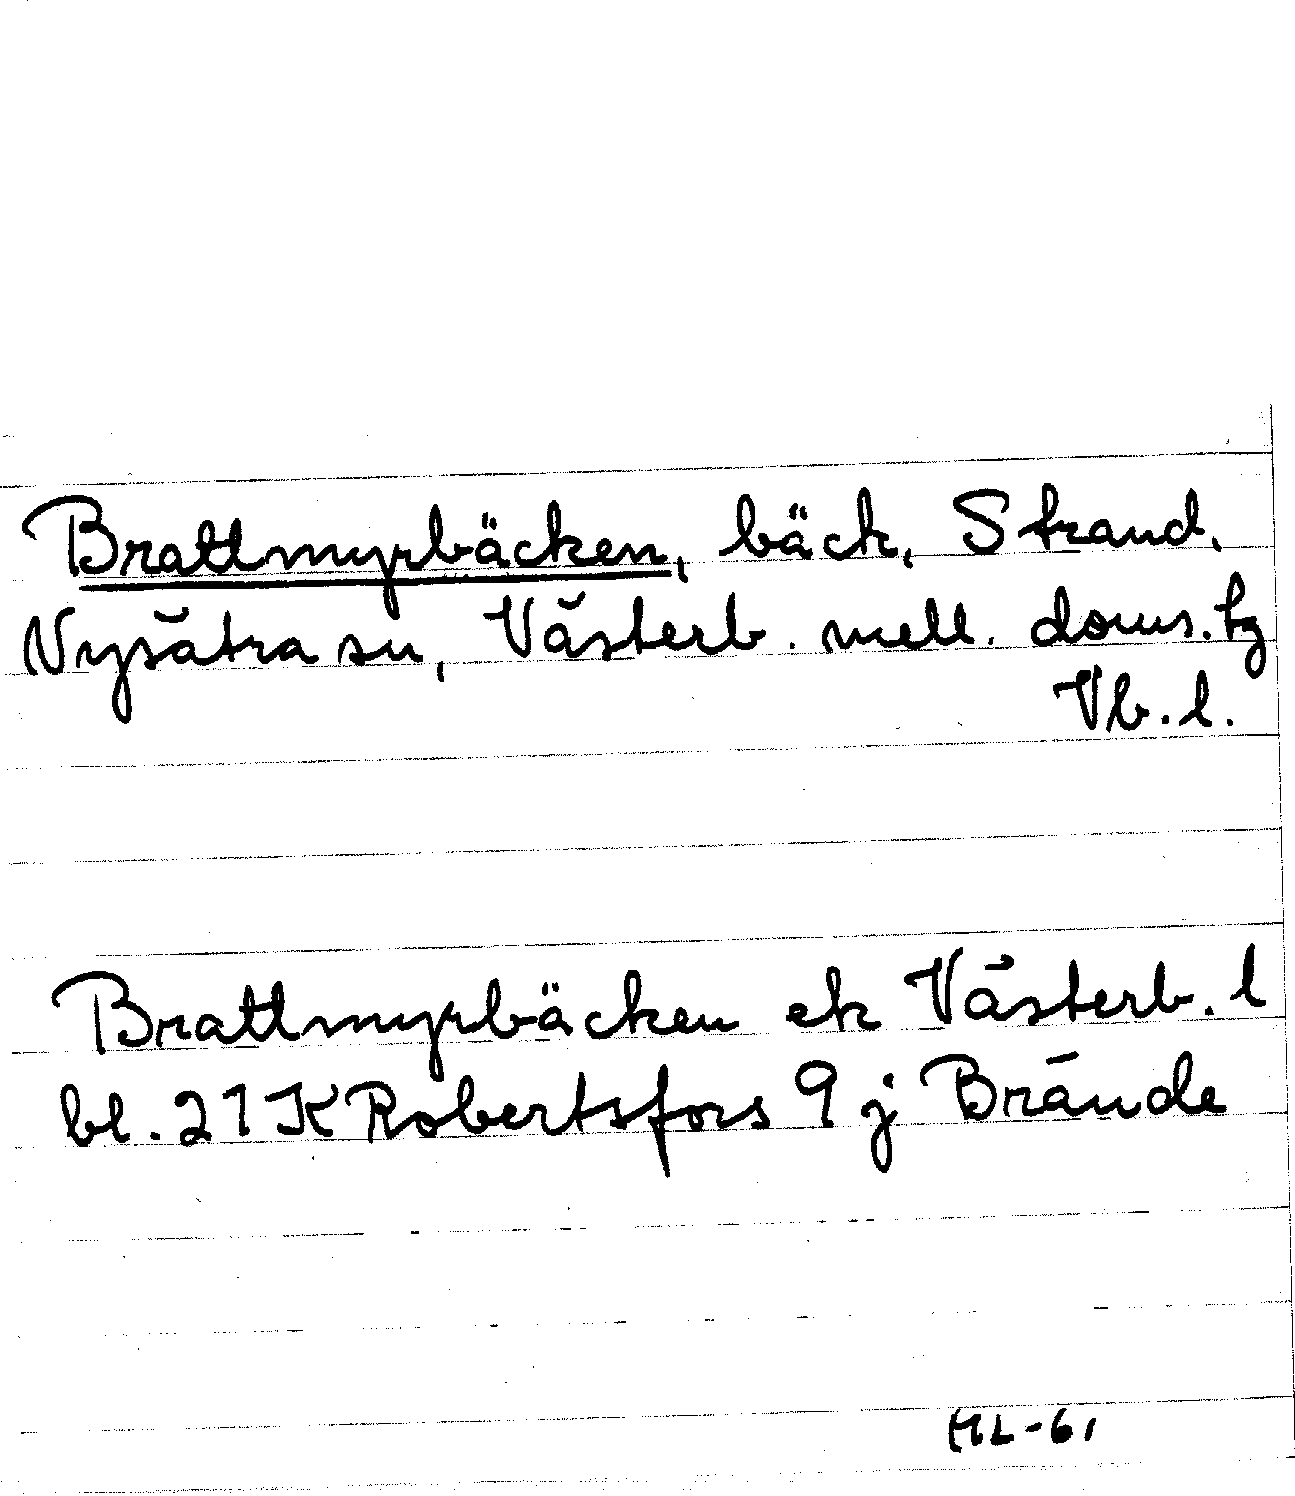 Brattmyrbäcken, bäck, Strand.
Nysätra sn, Västerb. mell. doms. tg
Vb. l.
Brattmyrbäcken ek Västerb. l
bl. 21 K Robertsfors 9 j Brände
ML-61